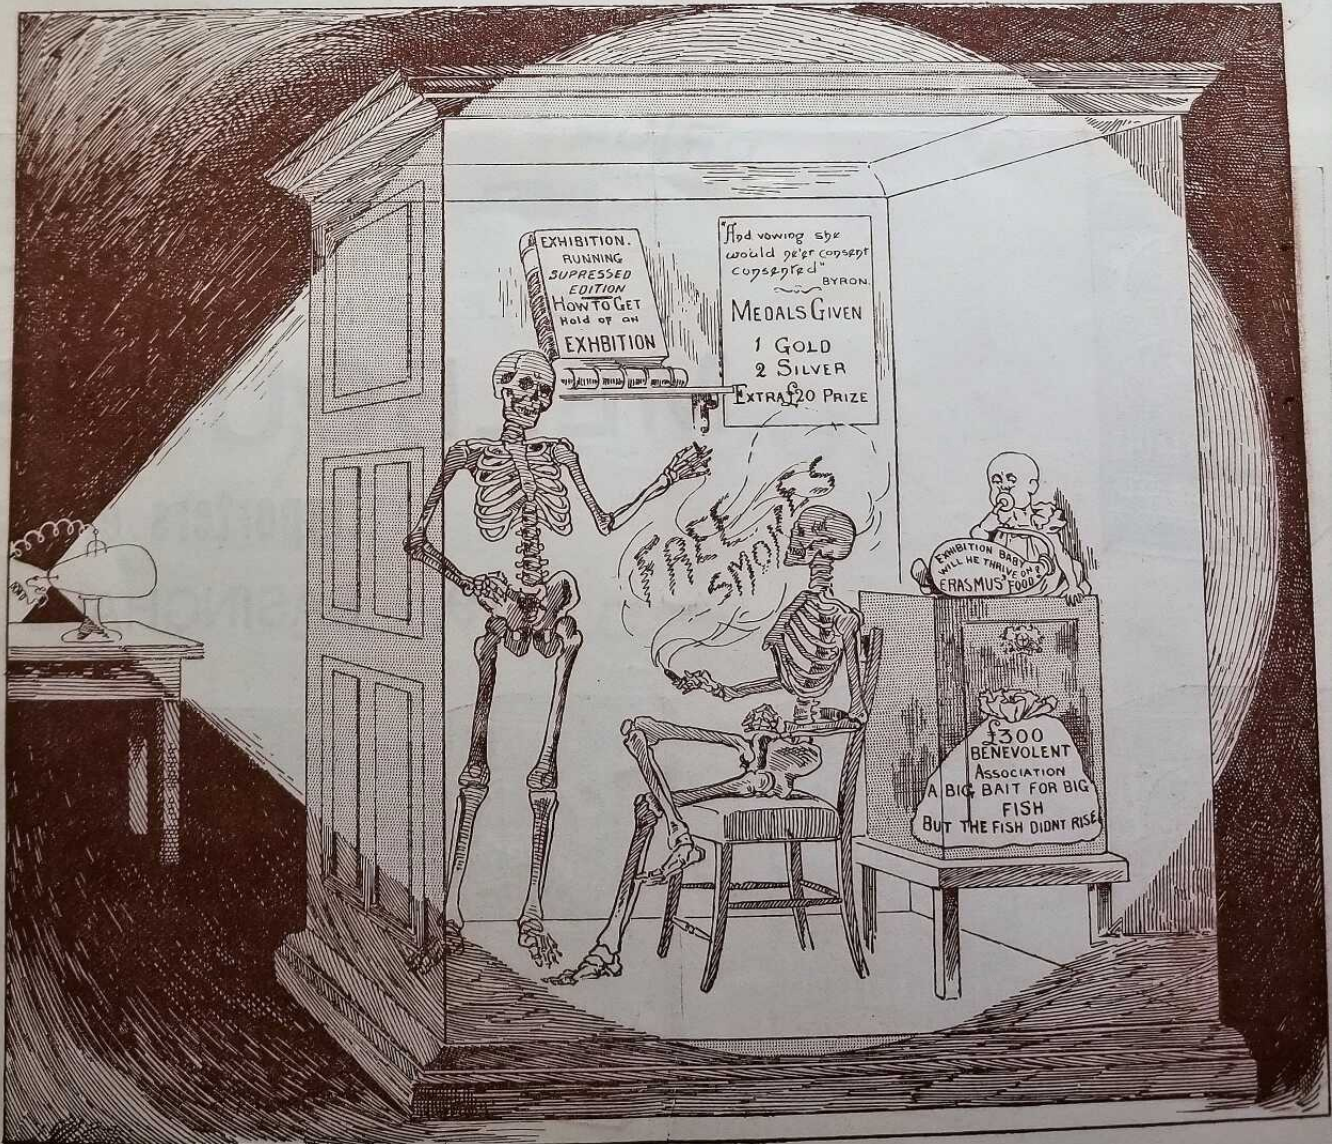 EXHIBITION.
RUNNING
SUPRESSED
EDITION
HOW TO GET
Hold of an
EXHBITION
"And vowing she
would ne'er consent
consented"
BYRON.
MEDALS GIVEN
1 GOLD
2 SILVER
EXTRA £20 PRIZE
FREE
SMOKES
EXHIBITION BABY
WILL HE THRIVE ON?
ERASMUS' FOOD
£300
BENEVOLENT
ASSOCIATION
A BIG BAIT FOR BIG
FISH
BUT THE FISH DIDNT RISE